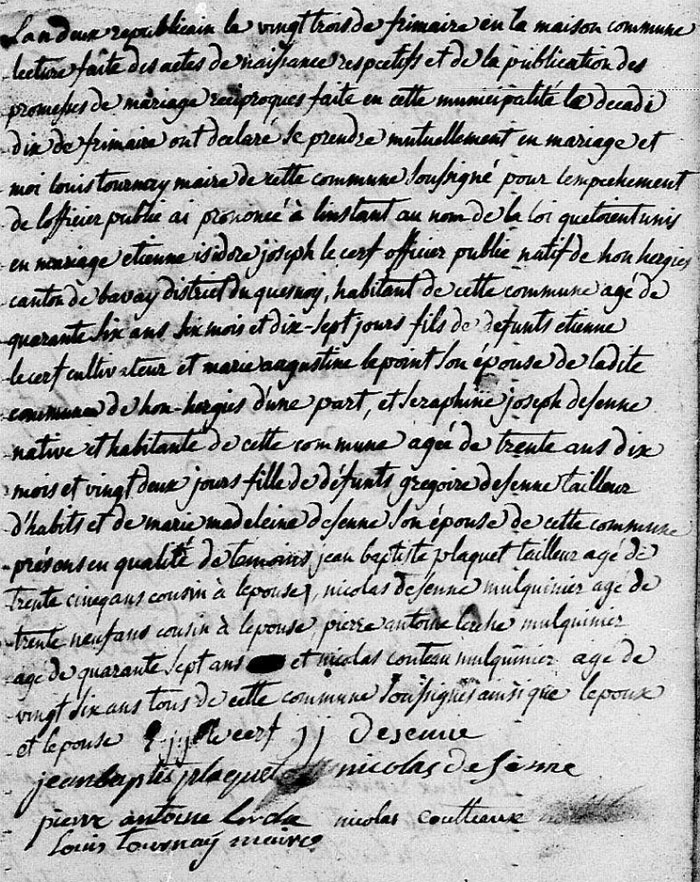 Lan deux republicain le vingt trois de frimaire en la maison commune
lecture faite des actes de naissance respectifs et de la publication des
promesses de mariage reciproques faite en cette municipalité le decadi
dix de frimaire ont declaré se prendre mutuellement en mariage et
moi louis tournay maire de cette commune soussigné pour lempechement
de lofficier public ai prononcé à linstant au nom de la loi quetoient unis
en mariage etienne isidore joseph le cerf officier public natif de hon hergies
canton de bavay district du quesnoy, habitant de cette commune agé de
quarante six ans six mois et dix-sept jours fils de defunts etienne
lecerf cultivateur et marie augustine lepoint son épouse de ladite
commune de hon-hergies dune part, et seraphine joseph desenne
native et habitante de cette commune agée de trente ans dix
mois et vingt deux jours fille de défunts gregoire desenne tailleur
d'habits et de marie madeleine desenne son épouse de cette commune
présens en qualité de temoins jean baptiste plaquet tailleur agé de
trente cinq ans cousin à lepouse, nicolas desenne mulquinier agé de
trente neuf ans cousin à lepouse, pierre antoine lerche mulquinier
agé de quarante sept ans et nicolas couteau mulquinier agé de
vingt six ans tous de cette commune soussignés ainsi que lepoux
et lepouse lecerf jj desenne
jean baptis plaquet nicolas desenne
pierre antoine nicolas coutteaux
louis tournay maire